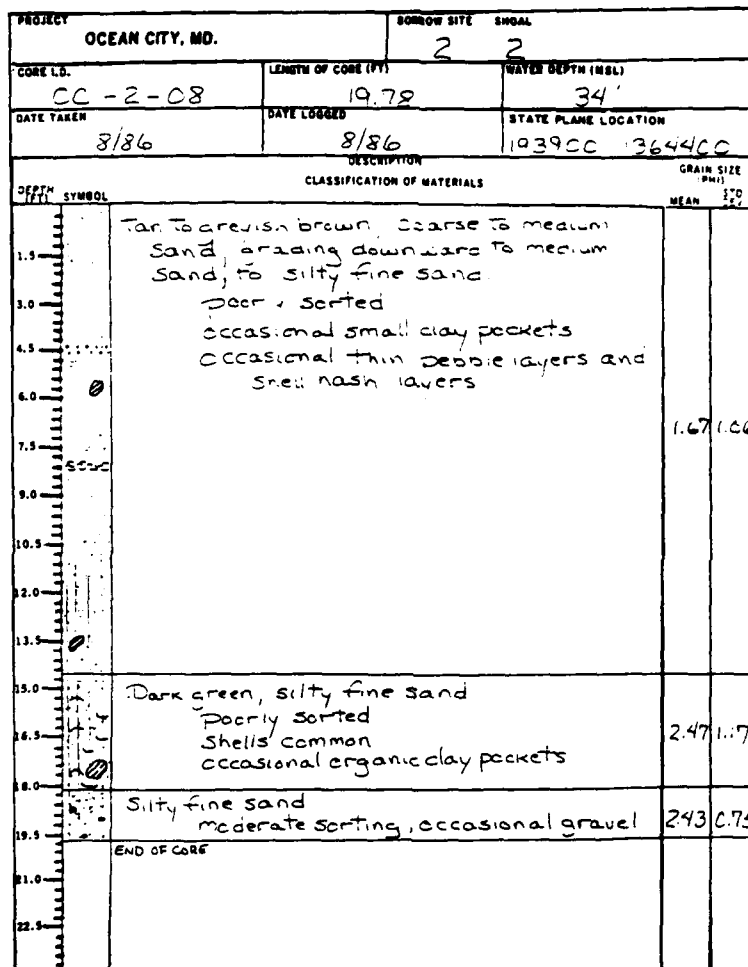 PROJECT
OCEAN CITY, MD.
BORROW SITE SHOAL
2 2
CORE I.D.
CC-2-08
LENGTH OF CORE (FT)
19.78
WATER DEPTH (MSL)
34'
DATE TAKEN
8/86
DATE LOGGED
8/86
STATE PLANE LOCATION
1939CC 13644CC
DESCRIPTION
DEPTH (FT)
SYMBOL
CLASSIFICATION OF MATERIALS
GRAIN SIZE (PHI)
MEAN
STD
Tan to greyish brown, coarse to medium
1.5
sand, grading downward to medium
sand, to silty fine sand
3.0
poorly sorted
occasional small clay pockets
4.5
occasional thin pebble layers and
shell hash layers
6.0
1.67 1.06
7.5
9.0
10.5
12.0
13.5
15.0
Dark green, silty fine sand
poorly sorted
16.5
shells common
2.47 1.17
occasional organic clay pockets
18.0
Silty fine sand
moderate sorting, occasional gravel
2.43
19.5
END OF CORE
21.0
22.5